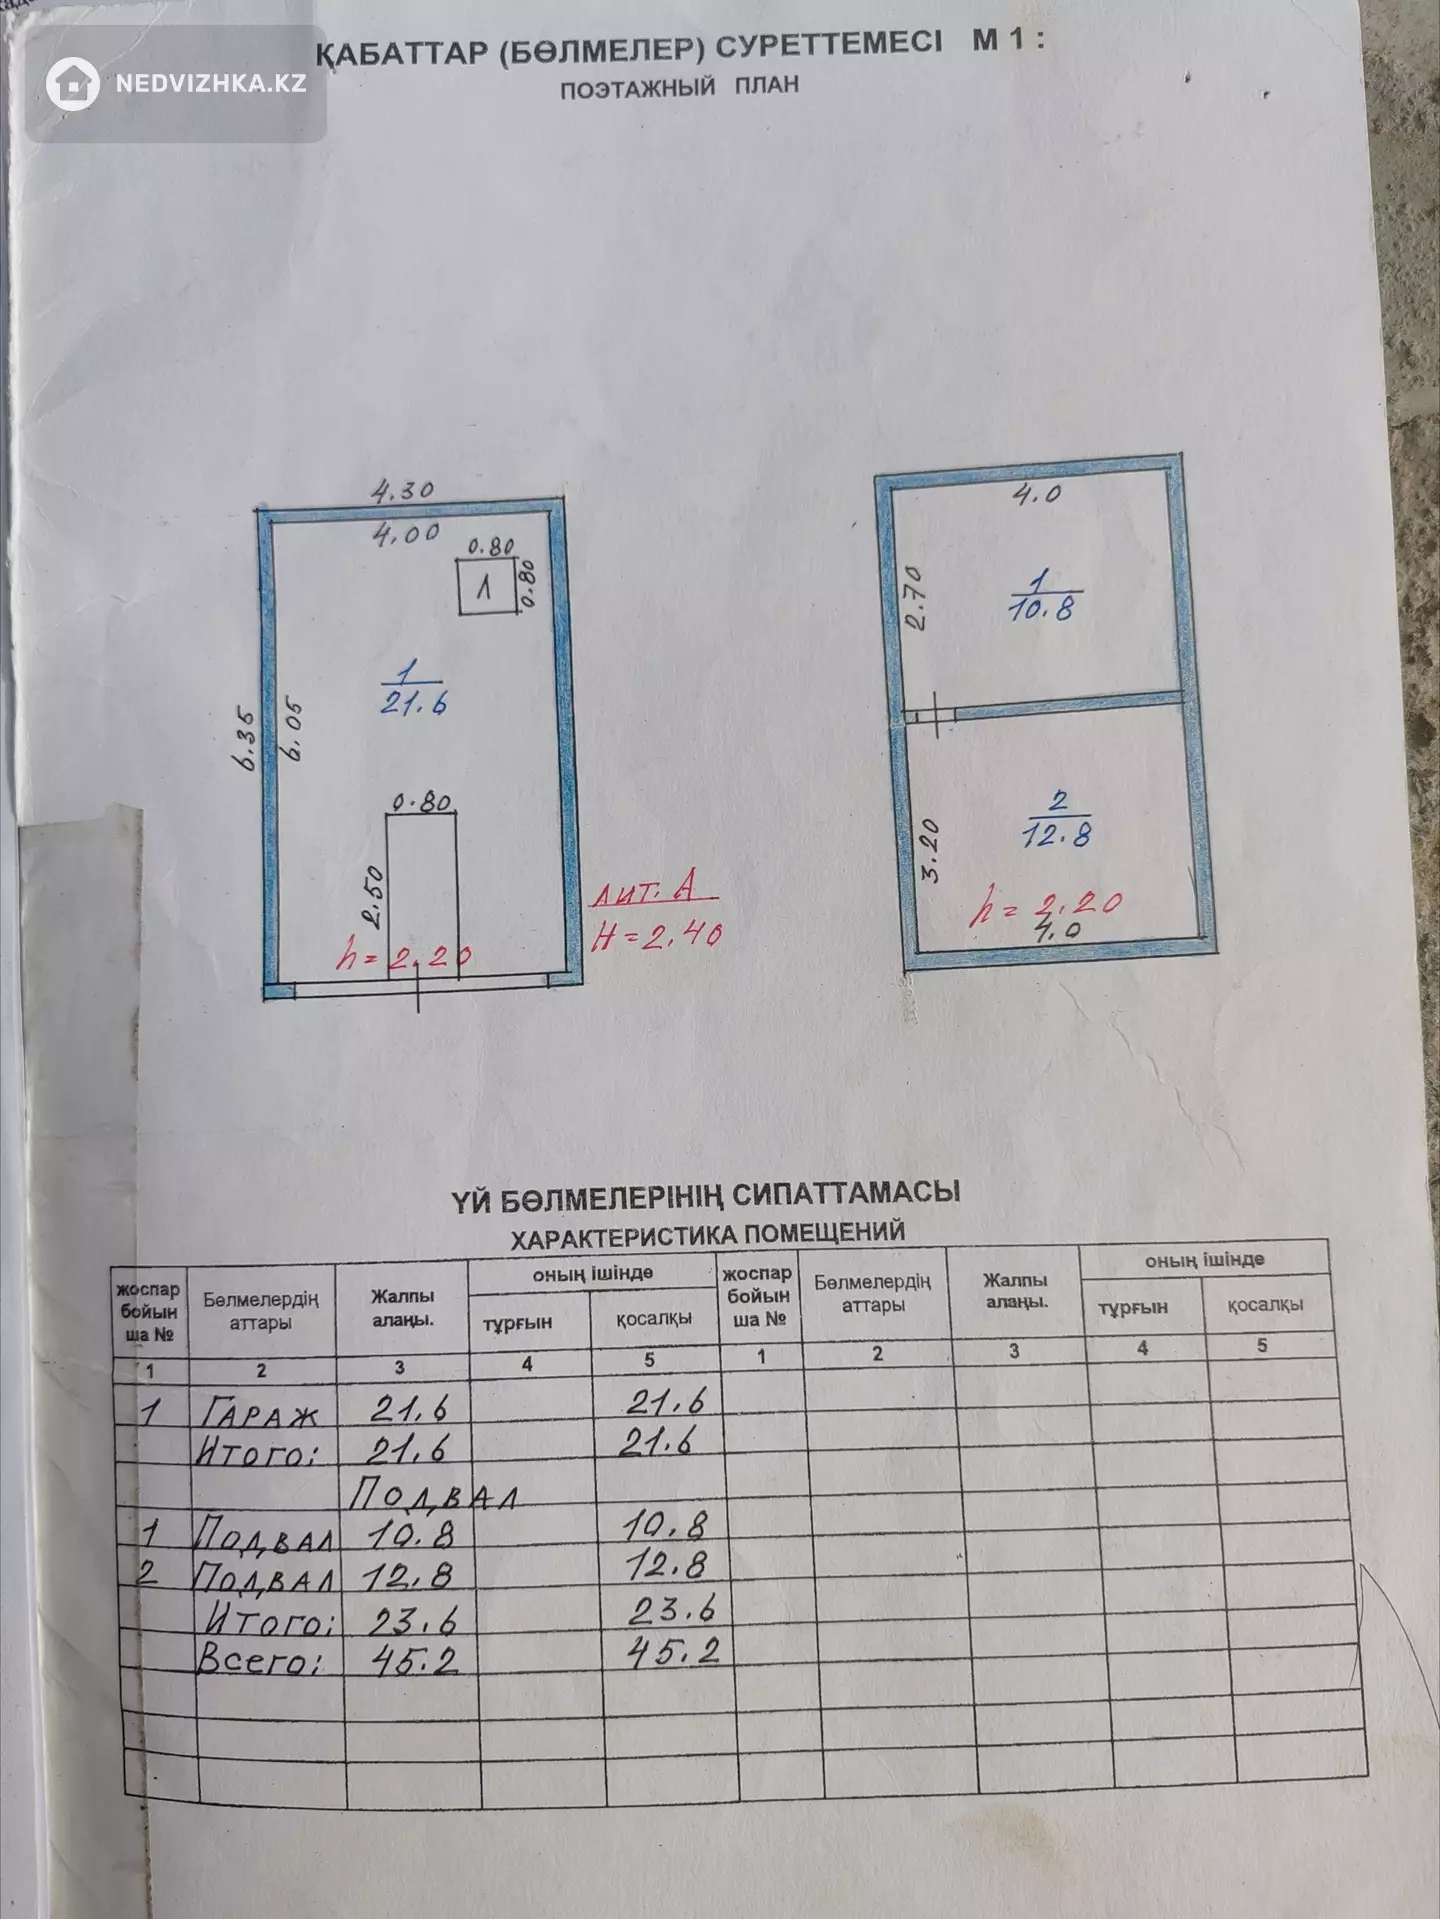 NEDVIZHKA.KZ
ҚАБАТТАР (БӨЛМЕЛЕР) СУРЕТТЕМЕСІ М 1 :
ПОЭТАЖНЫЙ ПЛАН
4.30
4.00
0.80
0.80
Л
1
21.6
6.35
6.05
0.80
2.50
h = 2.20
ЛИТ. А
Н = 2.40
4.0
2.70
1
10.8
2
12.8
3.20
h = 2.20
4.0
ҮЙ БӨЛМЕЛЕРІНІҢ СИПАТТАМАСЫ
ХАРАКТЕРИСТИКА ПОМЕЩЕНИЙ
жоспар бойын ша № Бөлмелердің аттары Жалпы алаңы. оның ішінде тұрғын қосалқы жоспар бойын ша № Бөлмелердің аттары Жалпы алаңы. оның ішінде тұрғын қосалқы
1 2 3 4 5 1 2 3 4 5
1 ГАРАЖ 21.6 21.6
Итого: 21.6 21.6
Подвал
1 Подвал 10.8 10.8
2 Подвал 12.8 12.8
Итого: 23.6 23.6
Всего: 45.2 45.2